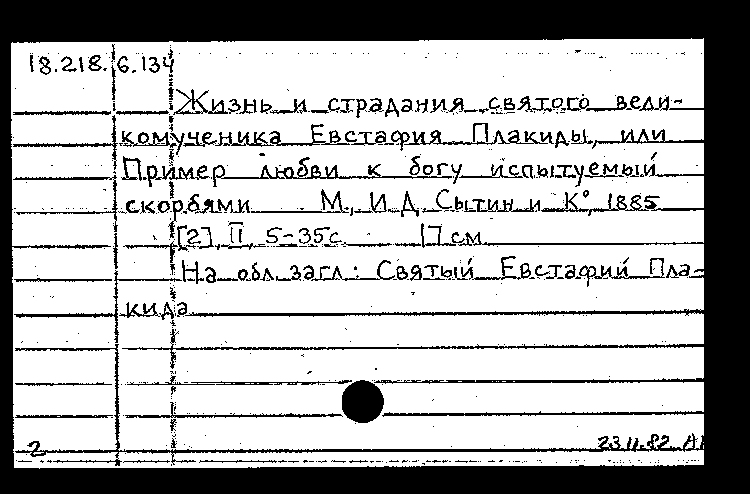 18.218.6.134
Жизнь и страдания святого вели-
комученика Евстафия Плакиды, или
Пример любви к богу испытуемый
скорбями М., И.Д. Сытин и К°, 1885
[2], II, 5-35с. 17 см
На обл. загл.: Святый Евстафий Пла-
кида
2 23.11.82